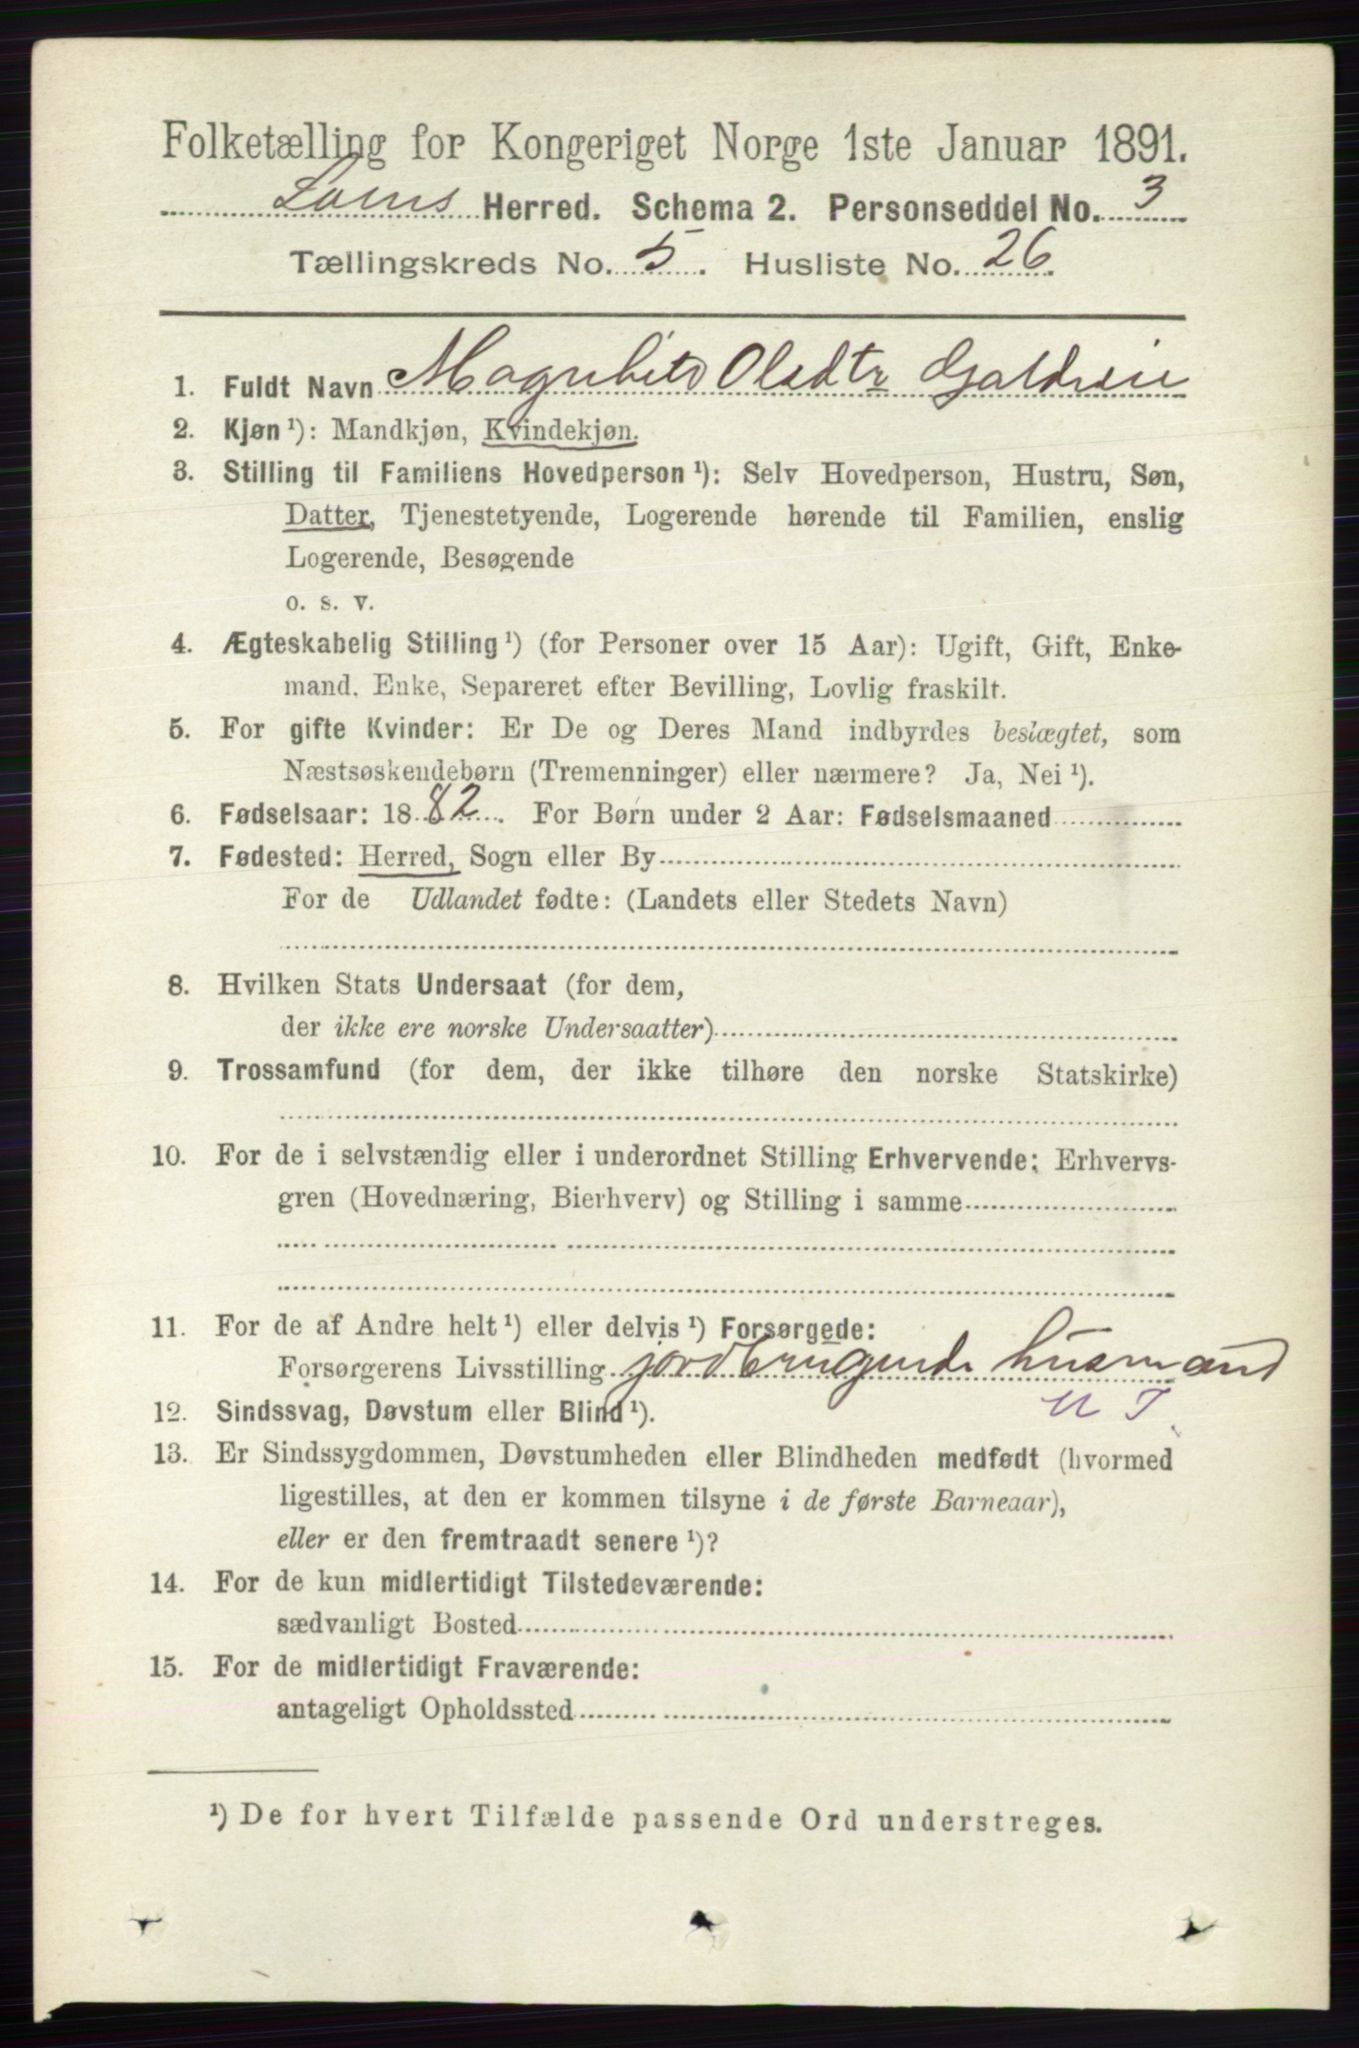 Folketælling for Kongeriget Norge 1ste Januar 1891.
Loms Herred. Schema 2. Personseddel No. 3
Tællingskreds No. 5. Husliste No. 26
1. Fuldt Navn Magnhild Olsdtr
2. Kjøn ¹): Mandkjøn, Kvindekjøn.
3. Stilling til Familiens Hovedperson ¹): Selv Hovedperson, Hustru, Søn,
Datter, Tjenestetyende, Logerende hørende til Familien, enslig
Logerende, Besøgende
o. s. v.
4. Ægteskabelig Stilling ¹) (for Personer over 15 Aar): Ugift, Gift, Enke-
mand, Enke, Separeret efter Bevilling, Lovlig fraskilt.
5. For gifte Kvinder: Er De og Deres Mand indbyrdes beslægtet, som
Næstsøskendebørn (Tremenninger) eller nærmere? Ja, Nei ¹).
6. Fødselsaar: 1882. For Børn under 2 Aar: Fødselsmaaned
7. Fødested: Herred, Sogn eller By
For de Udlandet fødte: (Landets eller Stedets Navn)
8. Hvilken Stats Undersaat (for dem,
der ikke ere norske Undersaatter)
9. Trossamfund (for dem, der ikke tilhøre den norske Statskirke)
10. For de i selvstændig eller i underordnet Stilling Erhvervende: Erhvervs-
gren (Hovednæring, Bierhverv) og Stilling i samme
11. For de af Andre helt ¹) eller delvis ¹) Forsørgede:
Forsørgerens Livsstilling jordbrugende husmand
12. Sindssvag, Døvstum eller Blind ¹).
13. Er Sindssygdommen, Døvstumheden eller Blindheden medfødt (hvormed
ligestilles, at den er kommen tilsyne i de første Barneaar),
eller er den fremtraadt senere ¹)?
14. For de kun midlertidigt Tilstedeværende:
sædvanligt Bosted
15. For de midlertidigt Fraværende:
antageligt Opholdssted
¹) De for hvert Tilfælde passende Ord understreges.